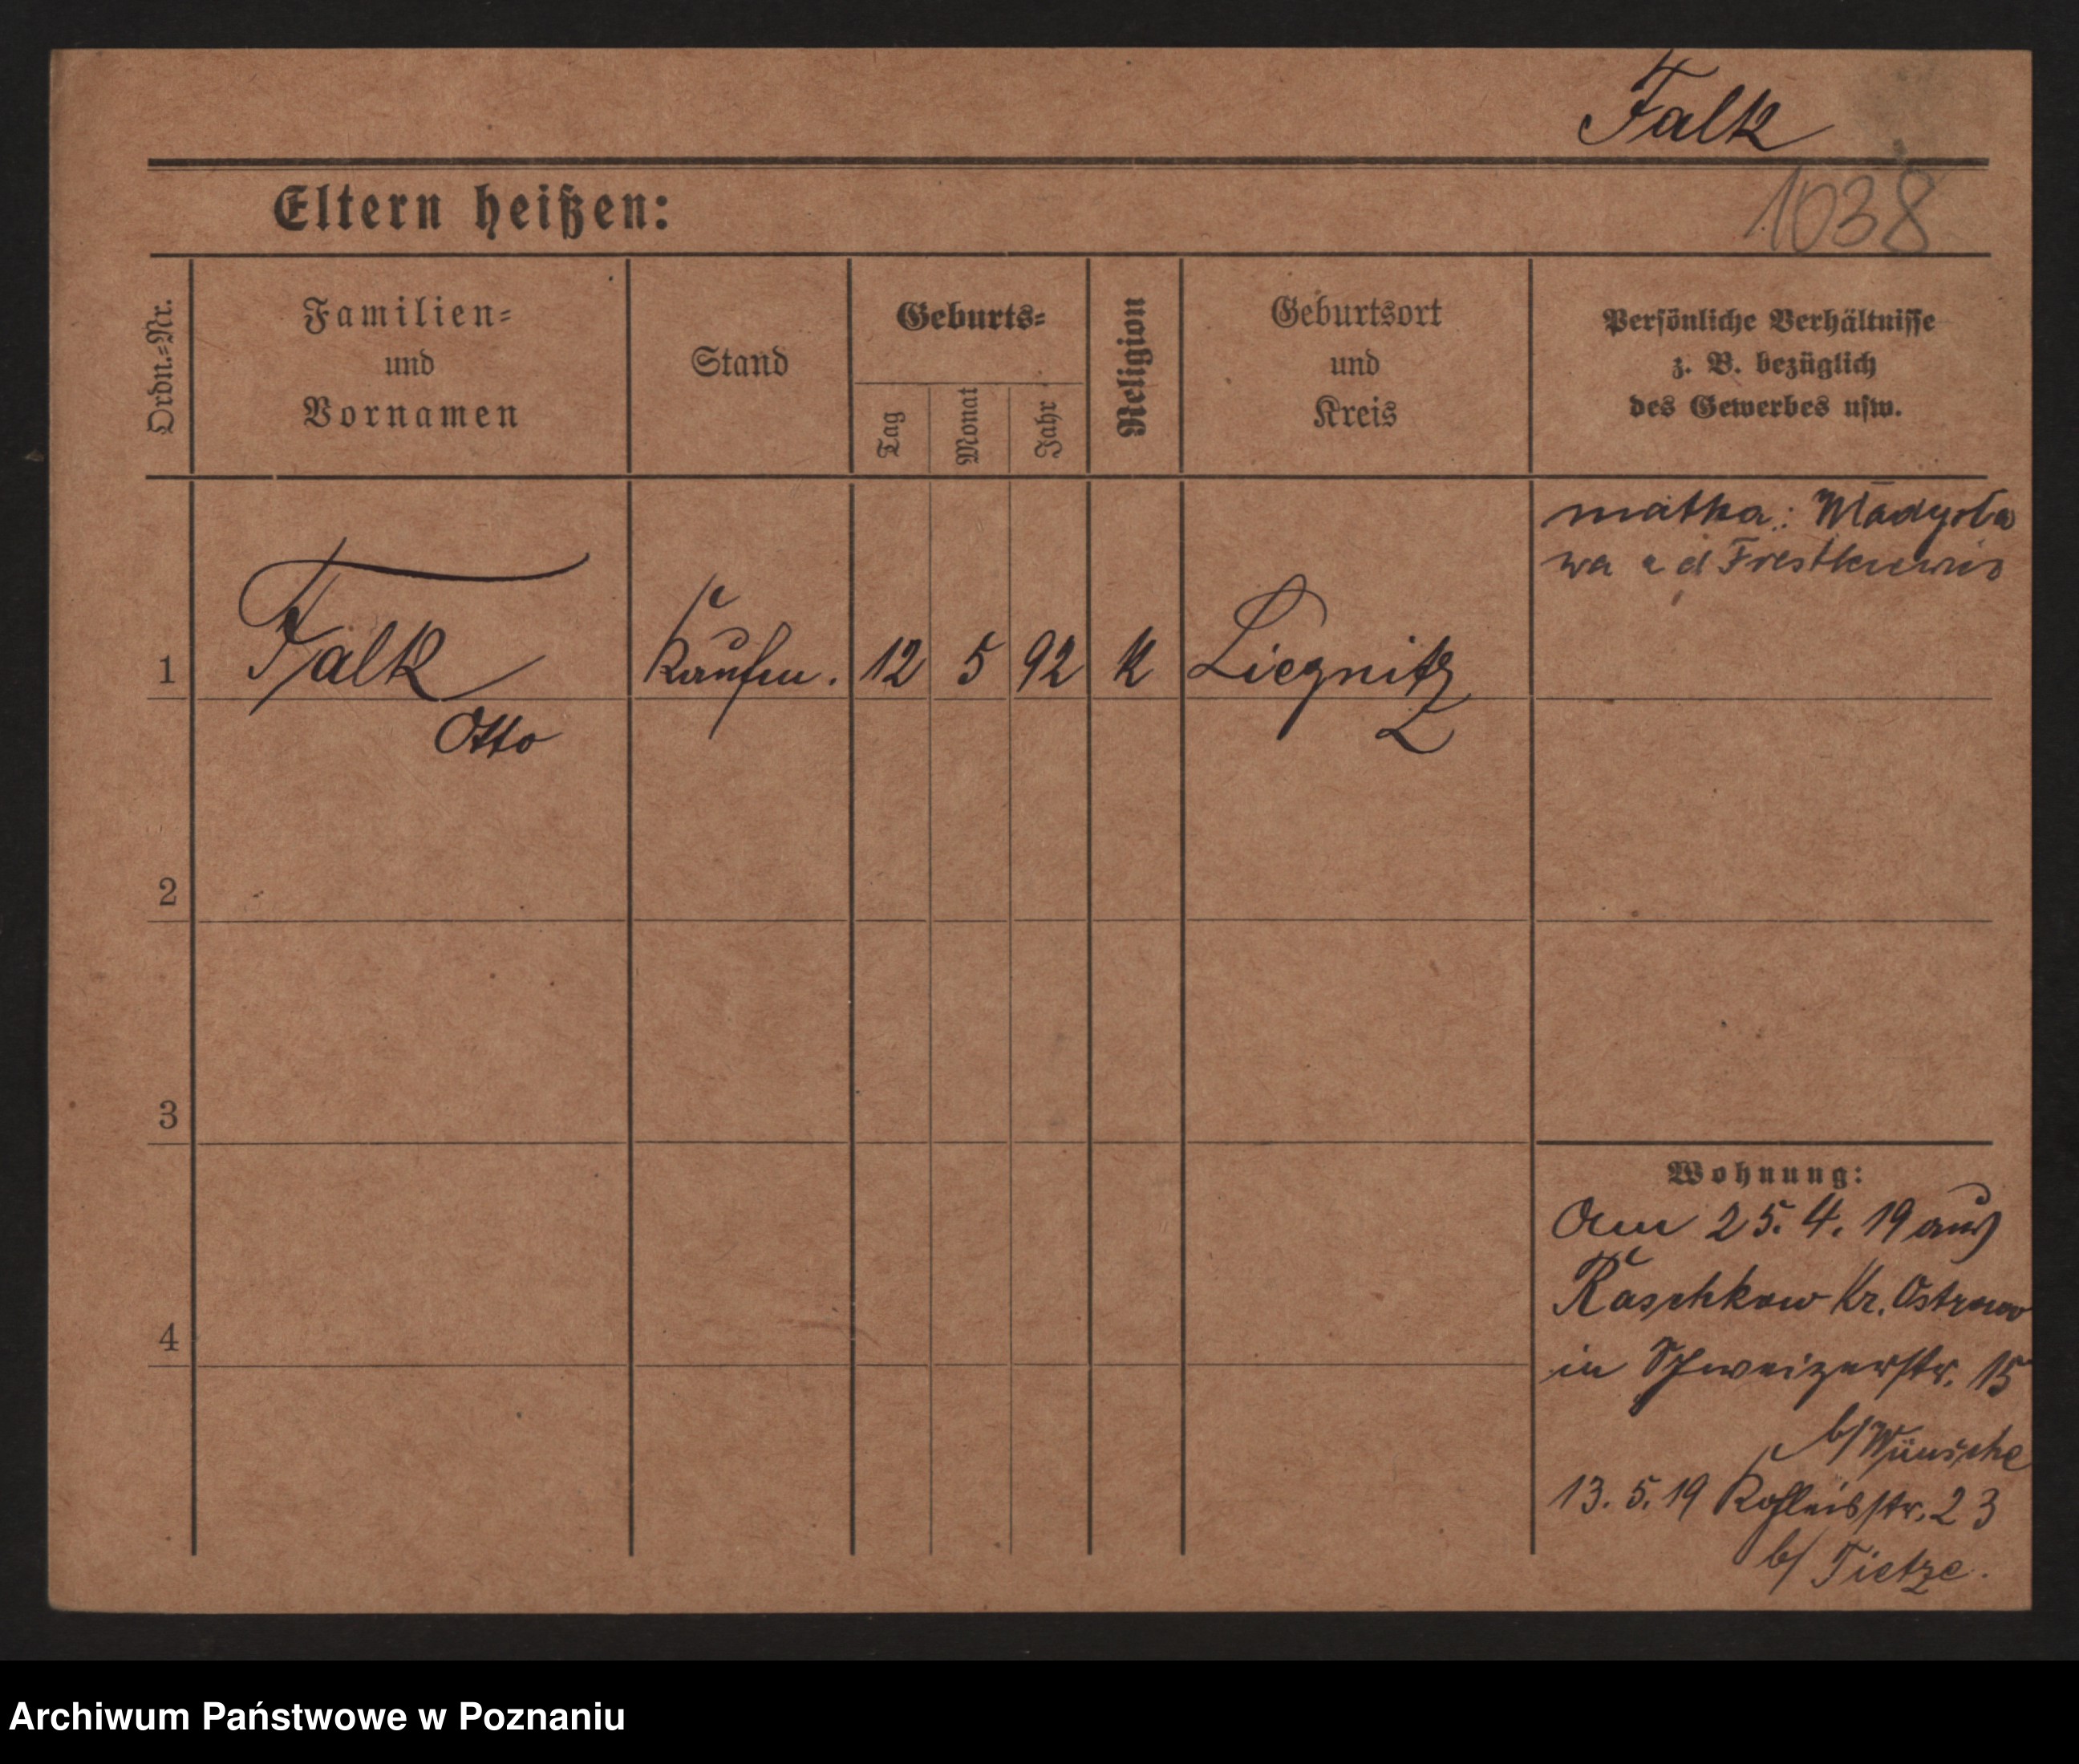 Falk
Eltern heißen:
1038
Ordn.=Nr.
Familien=
und
Vornamen
Stand
Geburts=
Tag
Monat
Jahr
Religion
Geburtsort
und
Kreis
Persönliche Verhältnisse
z. B. bezüglich
des Gewerbes usw.
matka:
wa
1
Falk
Otto
Kaufm.
12
5
92
K
Liegnitz
L
2
3
4
Wohnung:
Am 25.4.19 aus
Raschkow Kr. Ostrowo
in Schweizerstr. 15
b/ Wünsche
13.5.19 23
b/ Tietze.
Archiwum Państwowe w Poznaniu